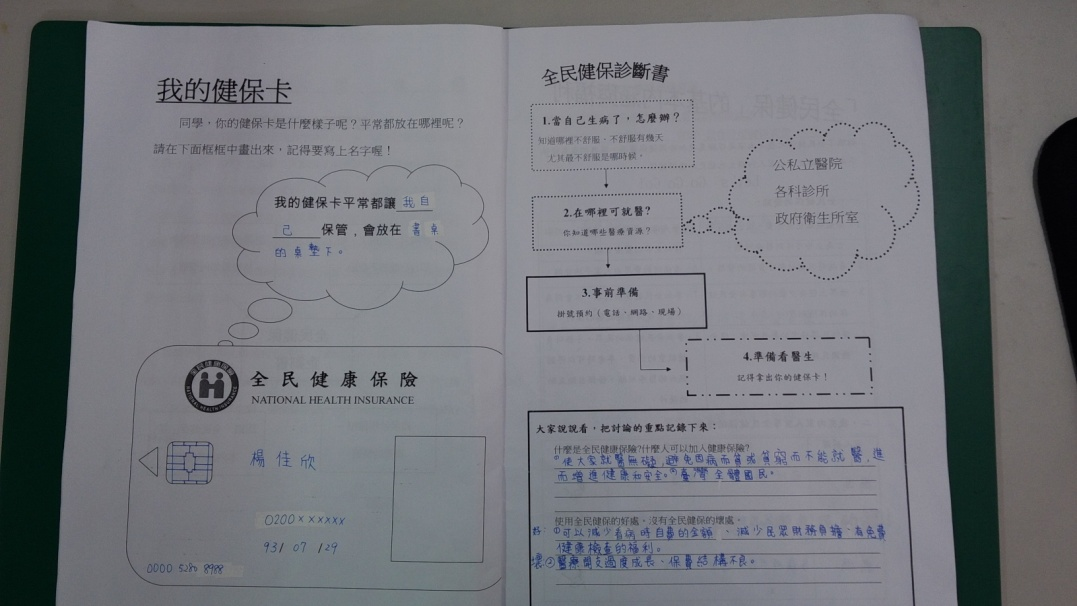 我的健保卡
同學，你的健保卡是什麼樣子呢？平常都放在哪裡呢？
請在下面框框中畫出來，記得要寫上名字喔！
我的健保卡平常都讓我自
己保管，會放在書桌
的桌墊下。
全民健康保險
NATIONAL HEALTH INSURANCE
楊佳欣
0200xxxxxx
93/07/29
0000 5280 8988
全民健保診斷書
1.當自己生病了，怎麼辦？
知道哪裡不舒服、不舒服有幾天
尤其最不舒服是哪時候。
2.在哪裡可就醫?
你知道哪些醫療資源？
公私立醫院
各科診所
政府衛生所室
3.事前準備
掛號預約（電話、網路、現場）
4.準備看醫生
記得拿出你的健保卡！
大家說說看，把討論的重點記錄下來：
什麼是全民健康保險?什麼人可以加入健康保險?
使大家就醫無礙,避免因病而貧或貧窮而不能就醫,進
而增進健康和安全。臺灣全體國民。
使用全民健保的好處、沒有全民健保的壞處。
好：①可以減少看病時自費的金額、減少民眾財務負擔、有免費
健康檢查的福利。
壞②醫療開支過度成長、保費結構不良。